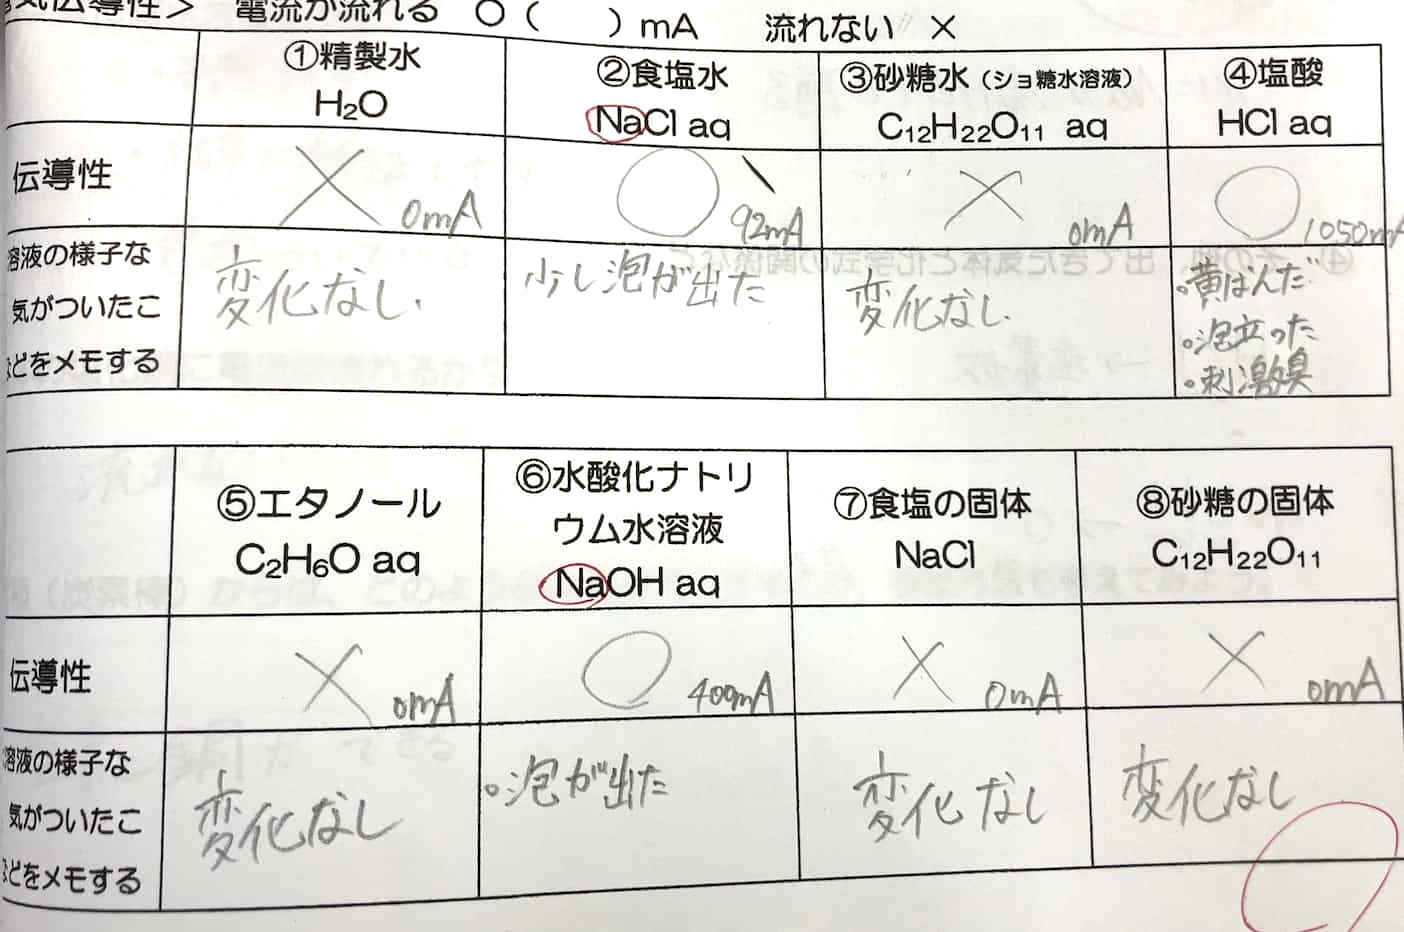 気伝導性＞ 電流が流れる ○（ ）mA 流れない ×
①精製水
H₂O
②食塩水
NaCl aq
③砂糖水（ショ糖水溶液）
C₁₂H₂₂O₁₁ aq
④塩酸
HCl aq
伝導性
× 0mA
○ 92mA
× 0mA
○ 1050mA
溶液の様子な
気がついたこ
などをメモする
変化なし.
少し泡が出た
変化なし.
・黄ばんだ
・泡立った
・刺激臭
⑤エタノール
C₂H₆O aq
⑥水酸化ナトリ
ウム水溶液
NaOH aq
⑦食塩の固体
NaCl
⑧砂糖の固体
C₁₂H₂₂O₁₁
伝導性
× 0mA
○ 400mA
× 0mA
× 0mA
溶液の様子な
気がついたこ
などをメモする
変化なし
・泡が出た
変化なし
変化なし